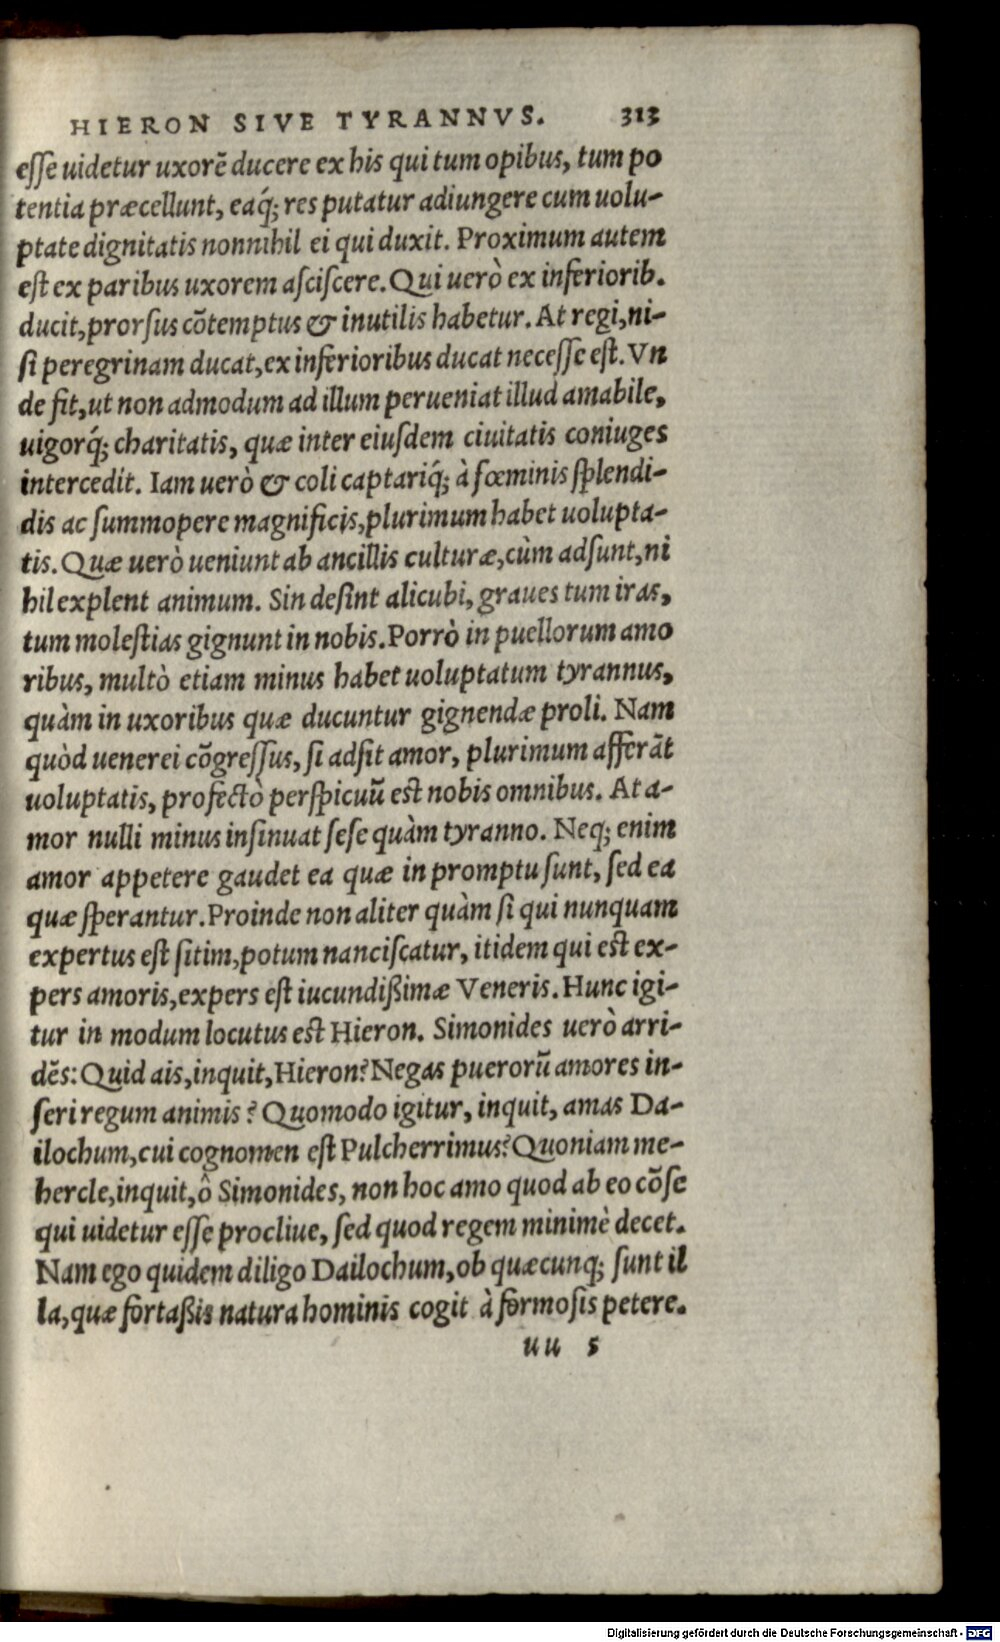 HIERON SIVE TYRANNVS. 313
eſſe uidetur uxorē ducere ex his qui tum opibus, tum po
tentia præcellunt, eaq́; res putatur adiungere cum uolu-
ptate dignitatis nonnihil ei qui duxit. Proximum autem
eſt ex paribus uxorem aſciſcere. Qui uerò ex inferiorib.
ducit, prorſus cōtemptus & inutilis habetur. At regi, ni-
ſi peregrinam ducat, ex inferioribus ducat neceſſe eſt. Vn
de fit, ut non admodum ad illum perueniat illud amabile,
uigorq́; charitatis, quæ inter eiuſdem ciuitatis coniuges
intercedit. Iam uerò & coli captariq́; à fœminis ſplendi-
dis ac ſummopere magnificis, plurimum habet uolupta-
tis. Quæ uerò ueniunt ab ancillis culturæ, cùm adſunt, ni
hil explent animum. Sin deſint alicubi, graues tum iras,
tum moleſtias gignunt in nobis. Porrò in puellorum amo
ribus, multò etiam minus habet uoluptatum tyrannus,
quàm in uxoribus quæ ducuntur gignendæ proli. Nam
quòd uenerei cōgreſſus, ſi adſit amor, plurimum afferāt
uoluptatis, profectò perſpicuū eſt nobis omnibus. At a-
mor nulli minus inſinuat ſeſe quàm tyranno. Neq; enim
amor appetere gaudet ea quæ in promptu ſunt, ſed ea
quæ ſperantur. Proinde non aliter quàm ſi qui nunquam
expertus eſt ſitim, potum nanciſcatur, itidem qui eſt ex-
pers amoris, expers eſt iucundißimæ Veneris. Hunc igi-
tur in modum locutus eſt Hieron. Simonides uerò arri-
dēs: Quid ais, inquit, Hieron? Negas puerorū amores in-
ſeri regum animis? Quomodo igitur, inquit, amas Da-
ilochum, cui cognomen eſt Pulcherrimus? Quoniam me-
hercle, inquit, ô Simonides, non hoc amo quod ab eo cōſe
qui uidetur eſſe procliue, ſed quod regem minimè decet.
Nam ego quidem diligo Dailochum, ob quæcunq; ſunt il
la, quæ fortaßis natura hominis cogit à formoſis petere.
uu 5
Digitalisierung gefördert durch die Deutsche Forschungsgemeinschaft - DFG